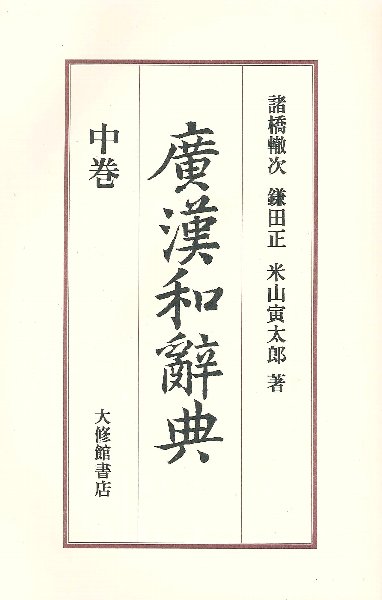 諸橋轍次 鎌田正 米山寅太郎 著
廣漢和辭典
中巻
大修館書店